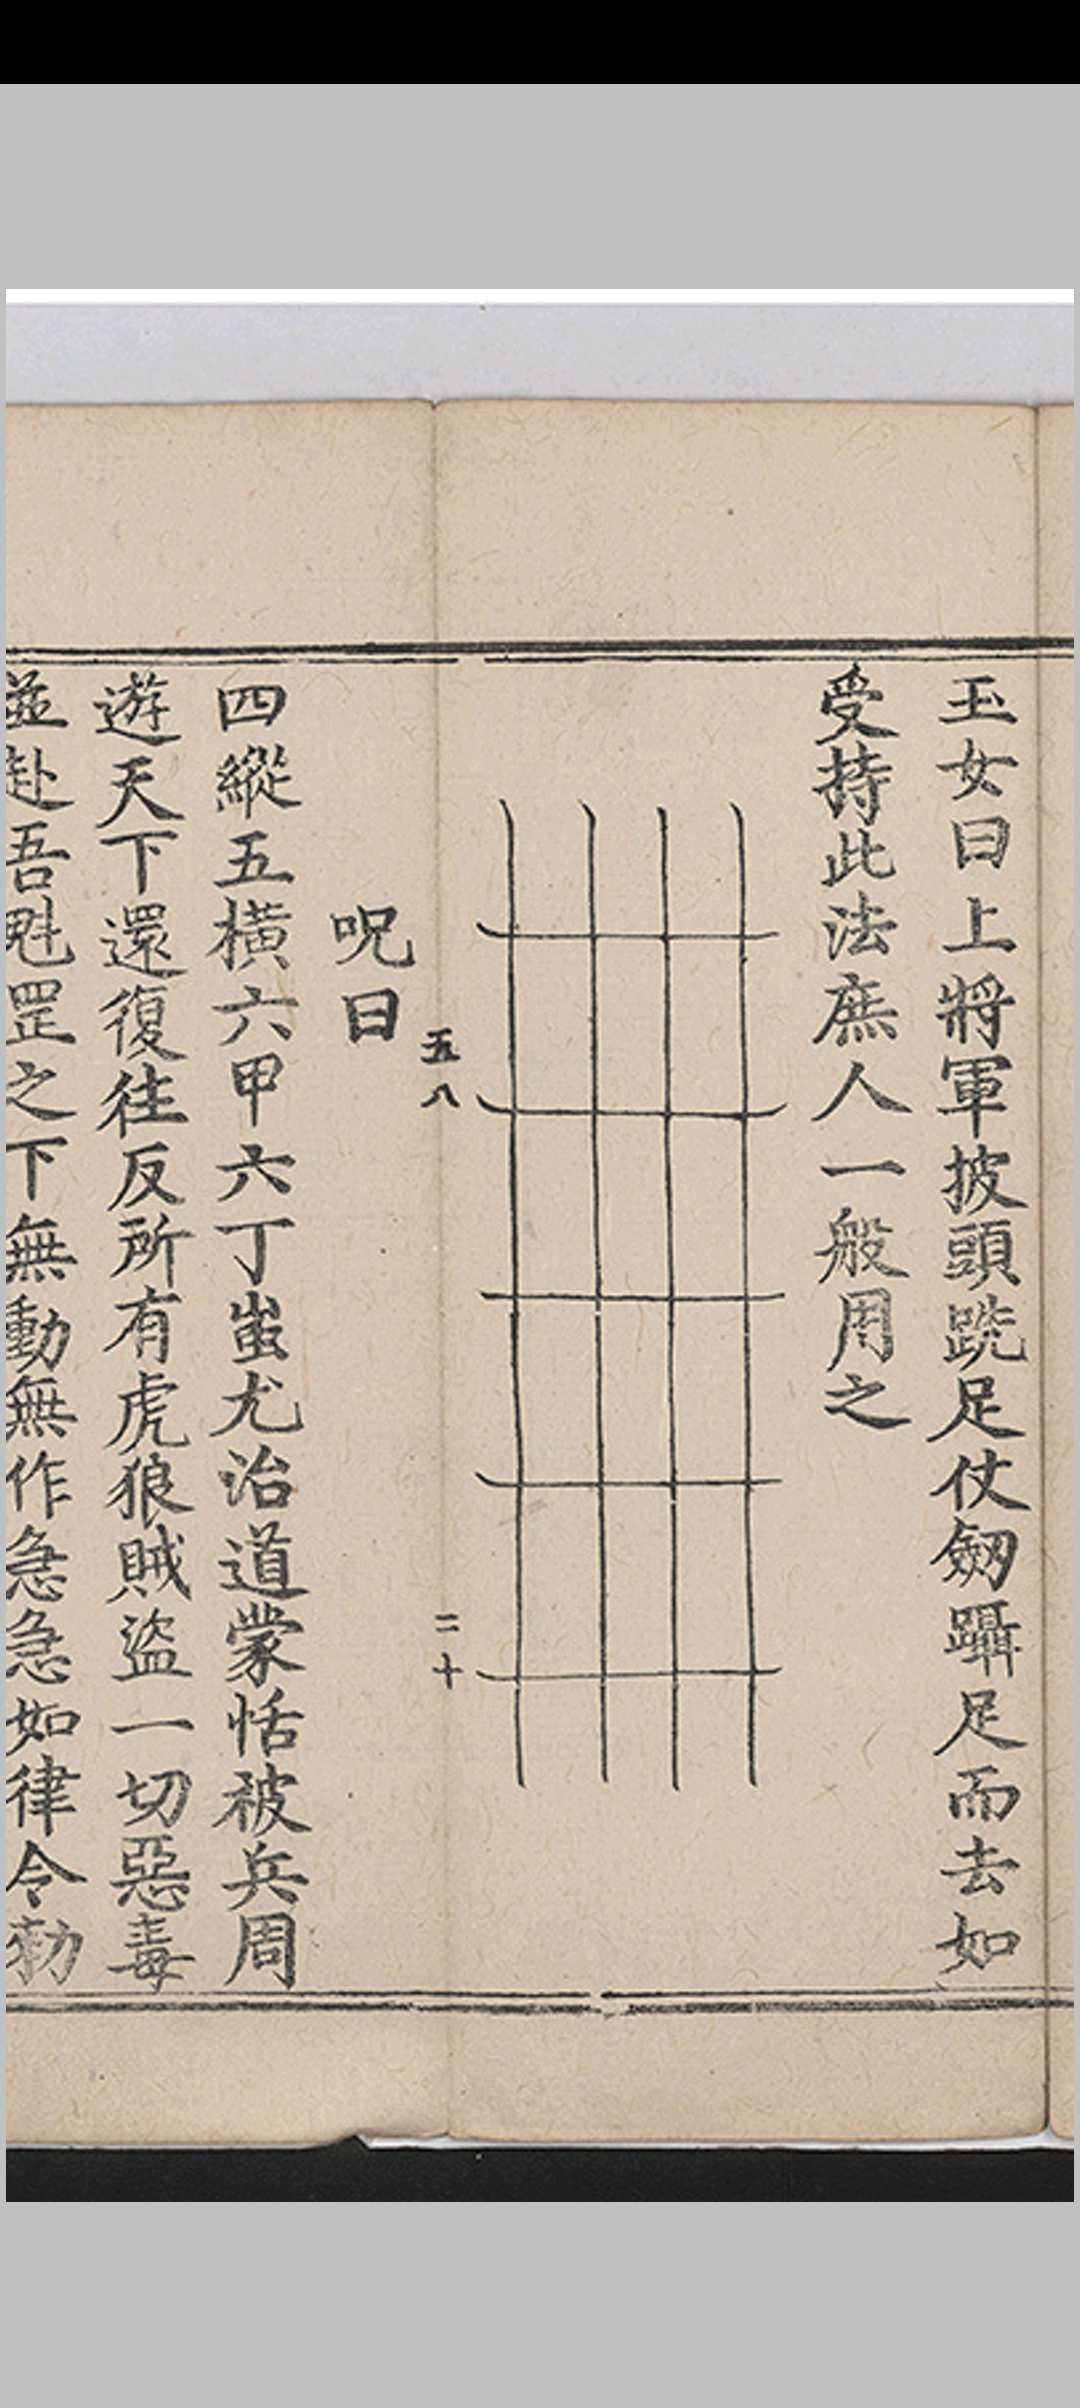 玉女曰上將軍披頭跣足仗劒躡足而去如
受持此法庶人一般用之
五八
二十
呪曰
四縱五橫六甲六丁蚩尤治道蒙恬被兵周
遊天下還復往反所有虎狼賊盜一切惡毒
並赴吾魁罡之下無動無作急急如律令勑